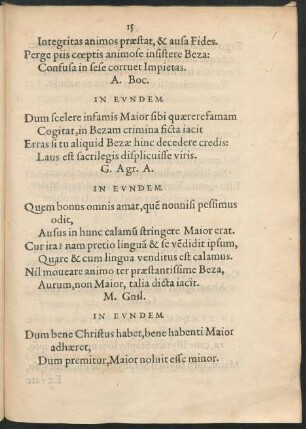 15
Integritas animos præstat, & ausa Fides.
Perge piis cœptis animose insistere Beza:
Confusa in sese corruet Impietas.
A. Boc.
IN EVNDEM.
Dum scelere infamis Maior sibi quærere famam
Cogitat, in Bezam crimina ficta iacit
Erras si tu aliquid Bezæ hinc decedere credis:
Laus est sacrilegis displicuisse viris.
G. Agr. A.
IN EVNDEM.
Quem bonus omnis amat, quē nonnisi pessimus
odit,
Ausus in hunc calamū stringere Maior erat.
Cur ita? nam pretio linguā & se vēdidit ipsum,
Quare & cum lingua venditus est calamus.
Nil moueare animo ter præstantissime Beza,
Aurum, non Maior, talia dicta iacit.
M. Gnsl.
IN EVNDEM.
Dum bene Christus habet, bene habenti Maior
adhæret,
Dum premitur, Maior noluit esse minor.